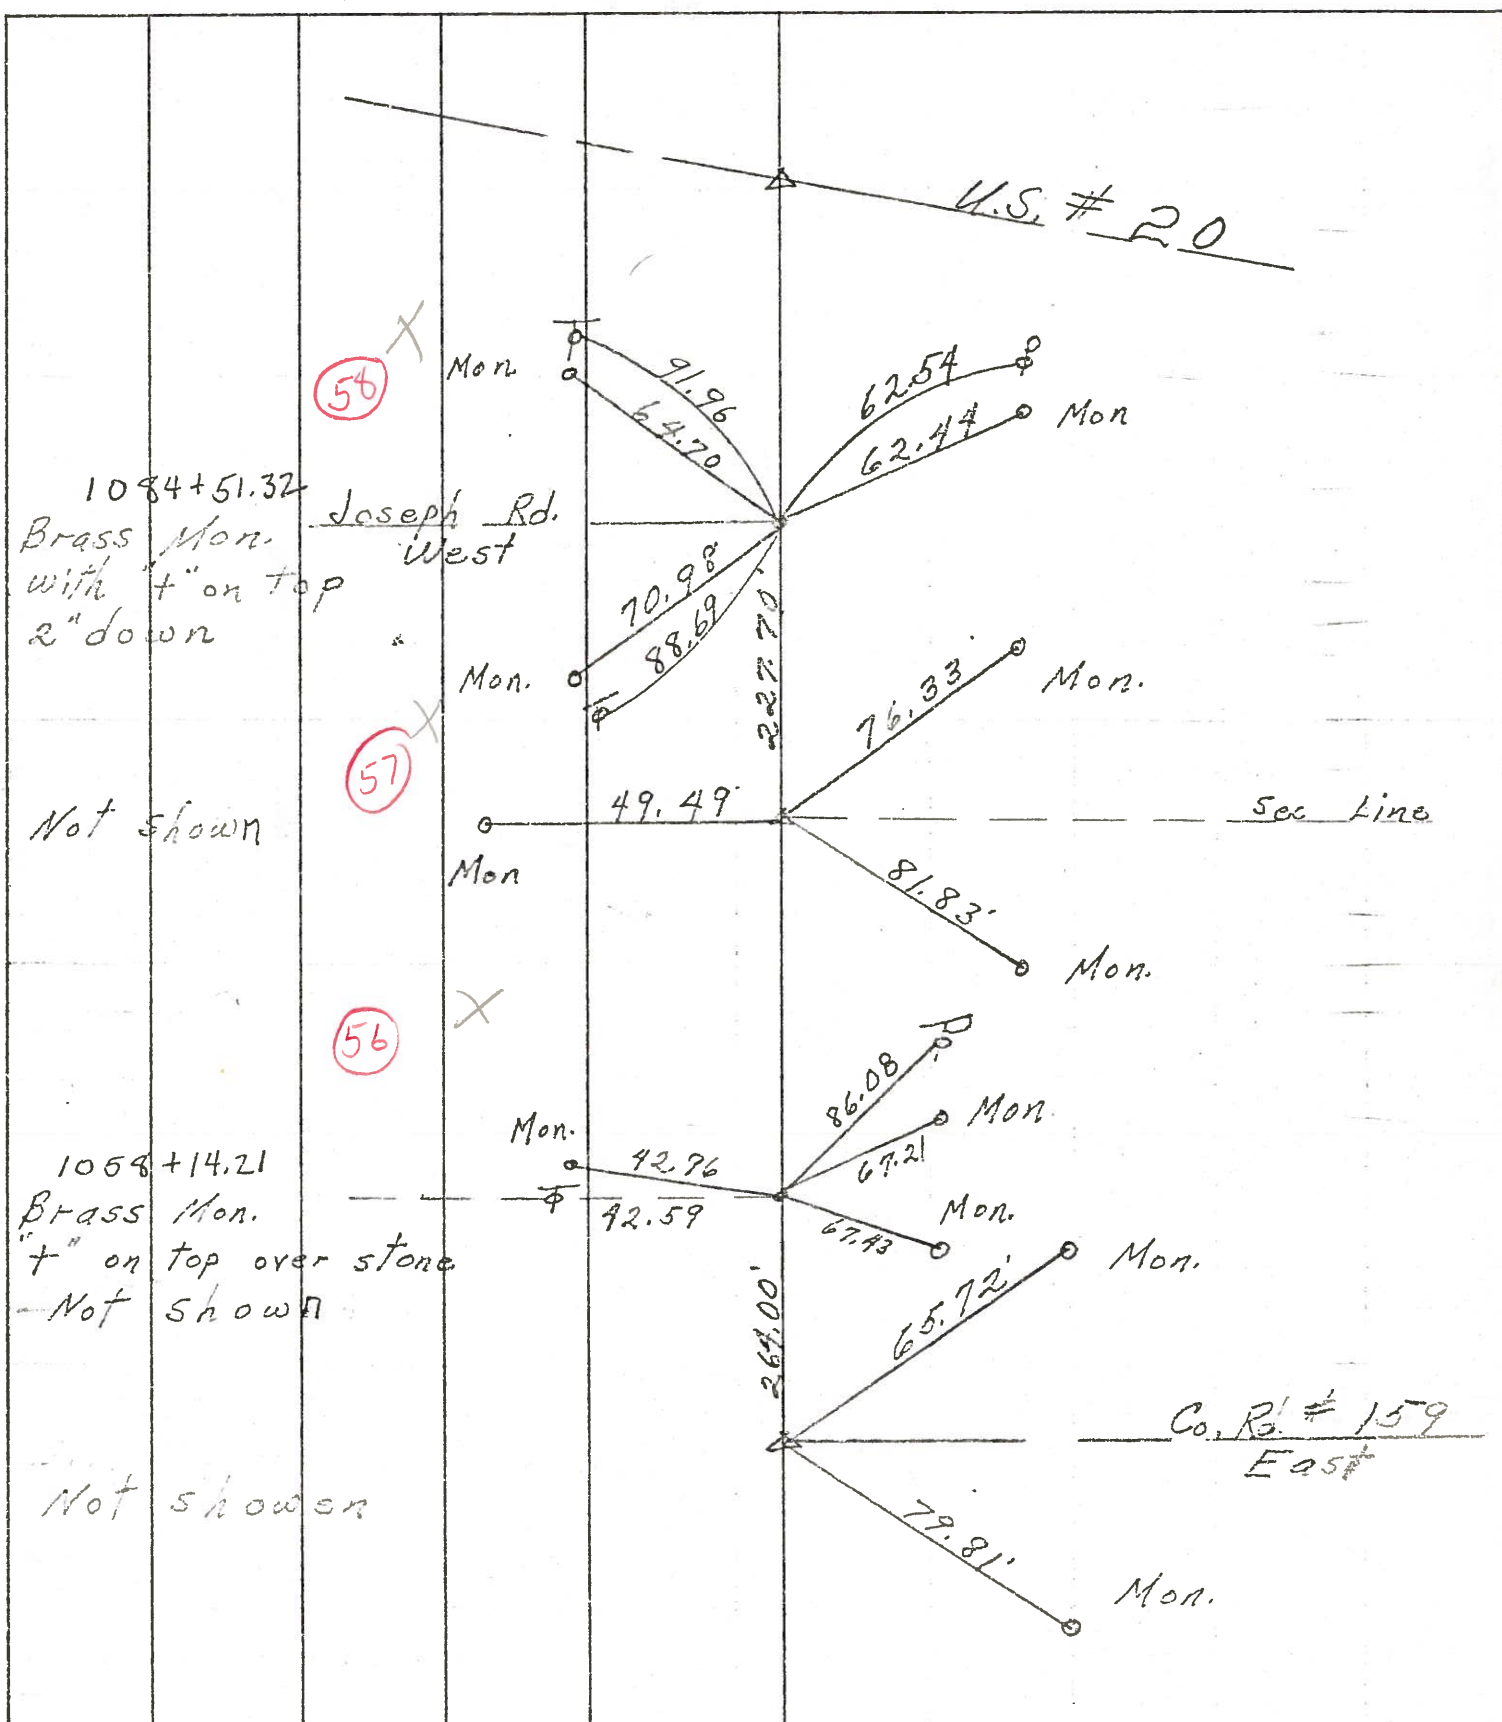 U.S. # 20
58
X
Mon.
91.96
64.70
62.54
62.44
Mon
1084+51.32
Brass Mon.
with "+" on top
2" down
Joseph Rd.
West
70.98'
88.69
Mon.
227.70'
76.33'
Mon.
57
X
Not shown
49.49'
Mon
Sec Line
81.83'
Mon.
56
X
86.08
Mon.
67.21
Mon.
42.76
42.59
67.43
Mon.
1058+14.21
Brass Mon.
"+" on top over stone
Not shown
264.00'
65.72'
Mon.
Co. Rd. # 159
East
Not showen
79.81'
Mon.